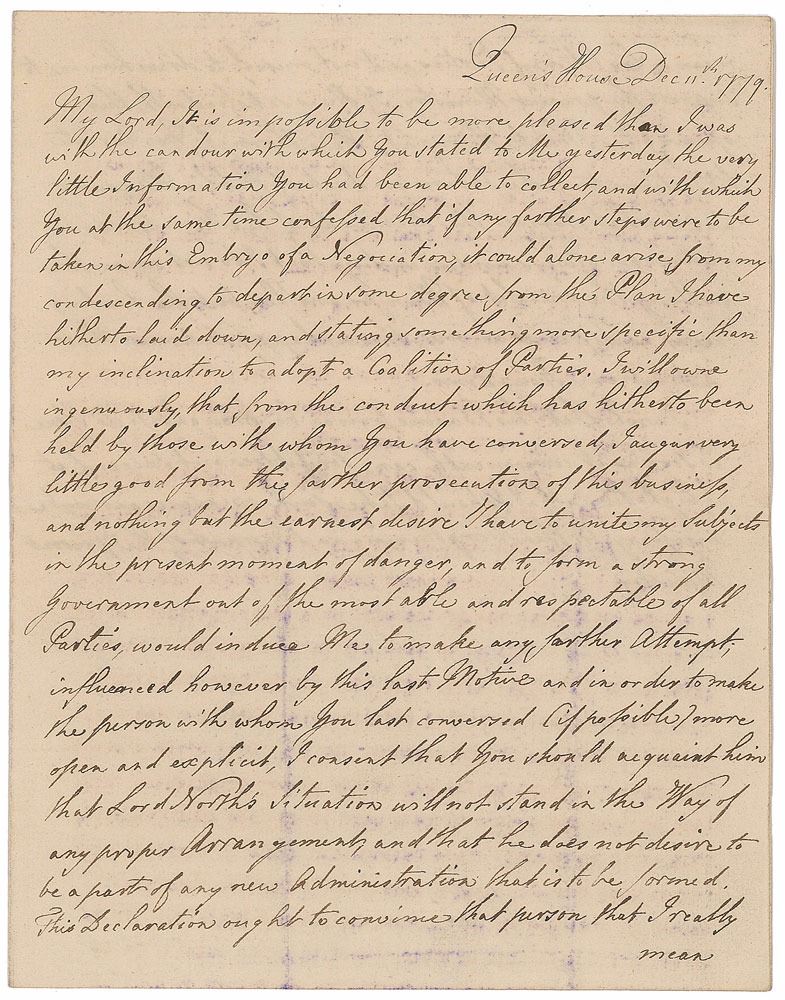 Queen's House Dec 11.th 1779.
My Lord, It is impossible to be more pleased than I was
with the candour with which You stated to Me yesterday the very
little Information You had been able to collect, and with which
You at the same time confessed that if any farther steps were to be
taken in this Embryo of a Negociation, it could alone arise from my
condescending to depart in some degree from the Plan I have
hitherto laid down, and stating something more specific than
my inclination to adopt a Coalition of Parties. I will owne
ingenuously, that from the conduct which has hitherto been
held by those with whom You have conversed, I augur very
little good from the farther prosecution of this business,
and nothing but the earnest desire I have to unite my Subjects
in the present moment of danger, and to form a strong
Government out of the most able and respectable of all
Parties, would induce Me to make any farther Attempt;
influenced however by this last Motive and in order to make
the person with whom You last conversed (if possible) more
open and explicit, I consent that You should acquaint him
that Lord North's Situation will not stand in the Way of
any proper Arrangement, and that he does not desire to
be a part of any new Administration that is to be formed.
This Declaration ought to convince that person that I really
mean